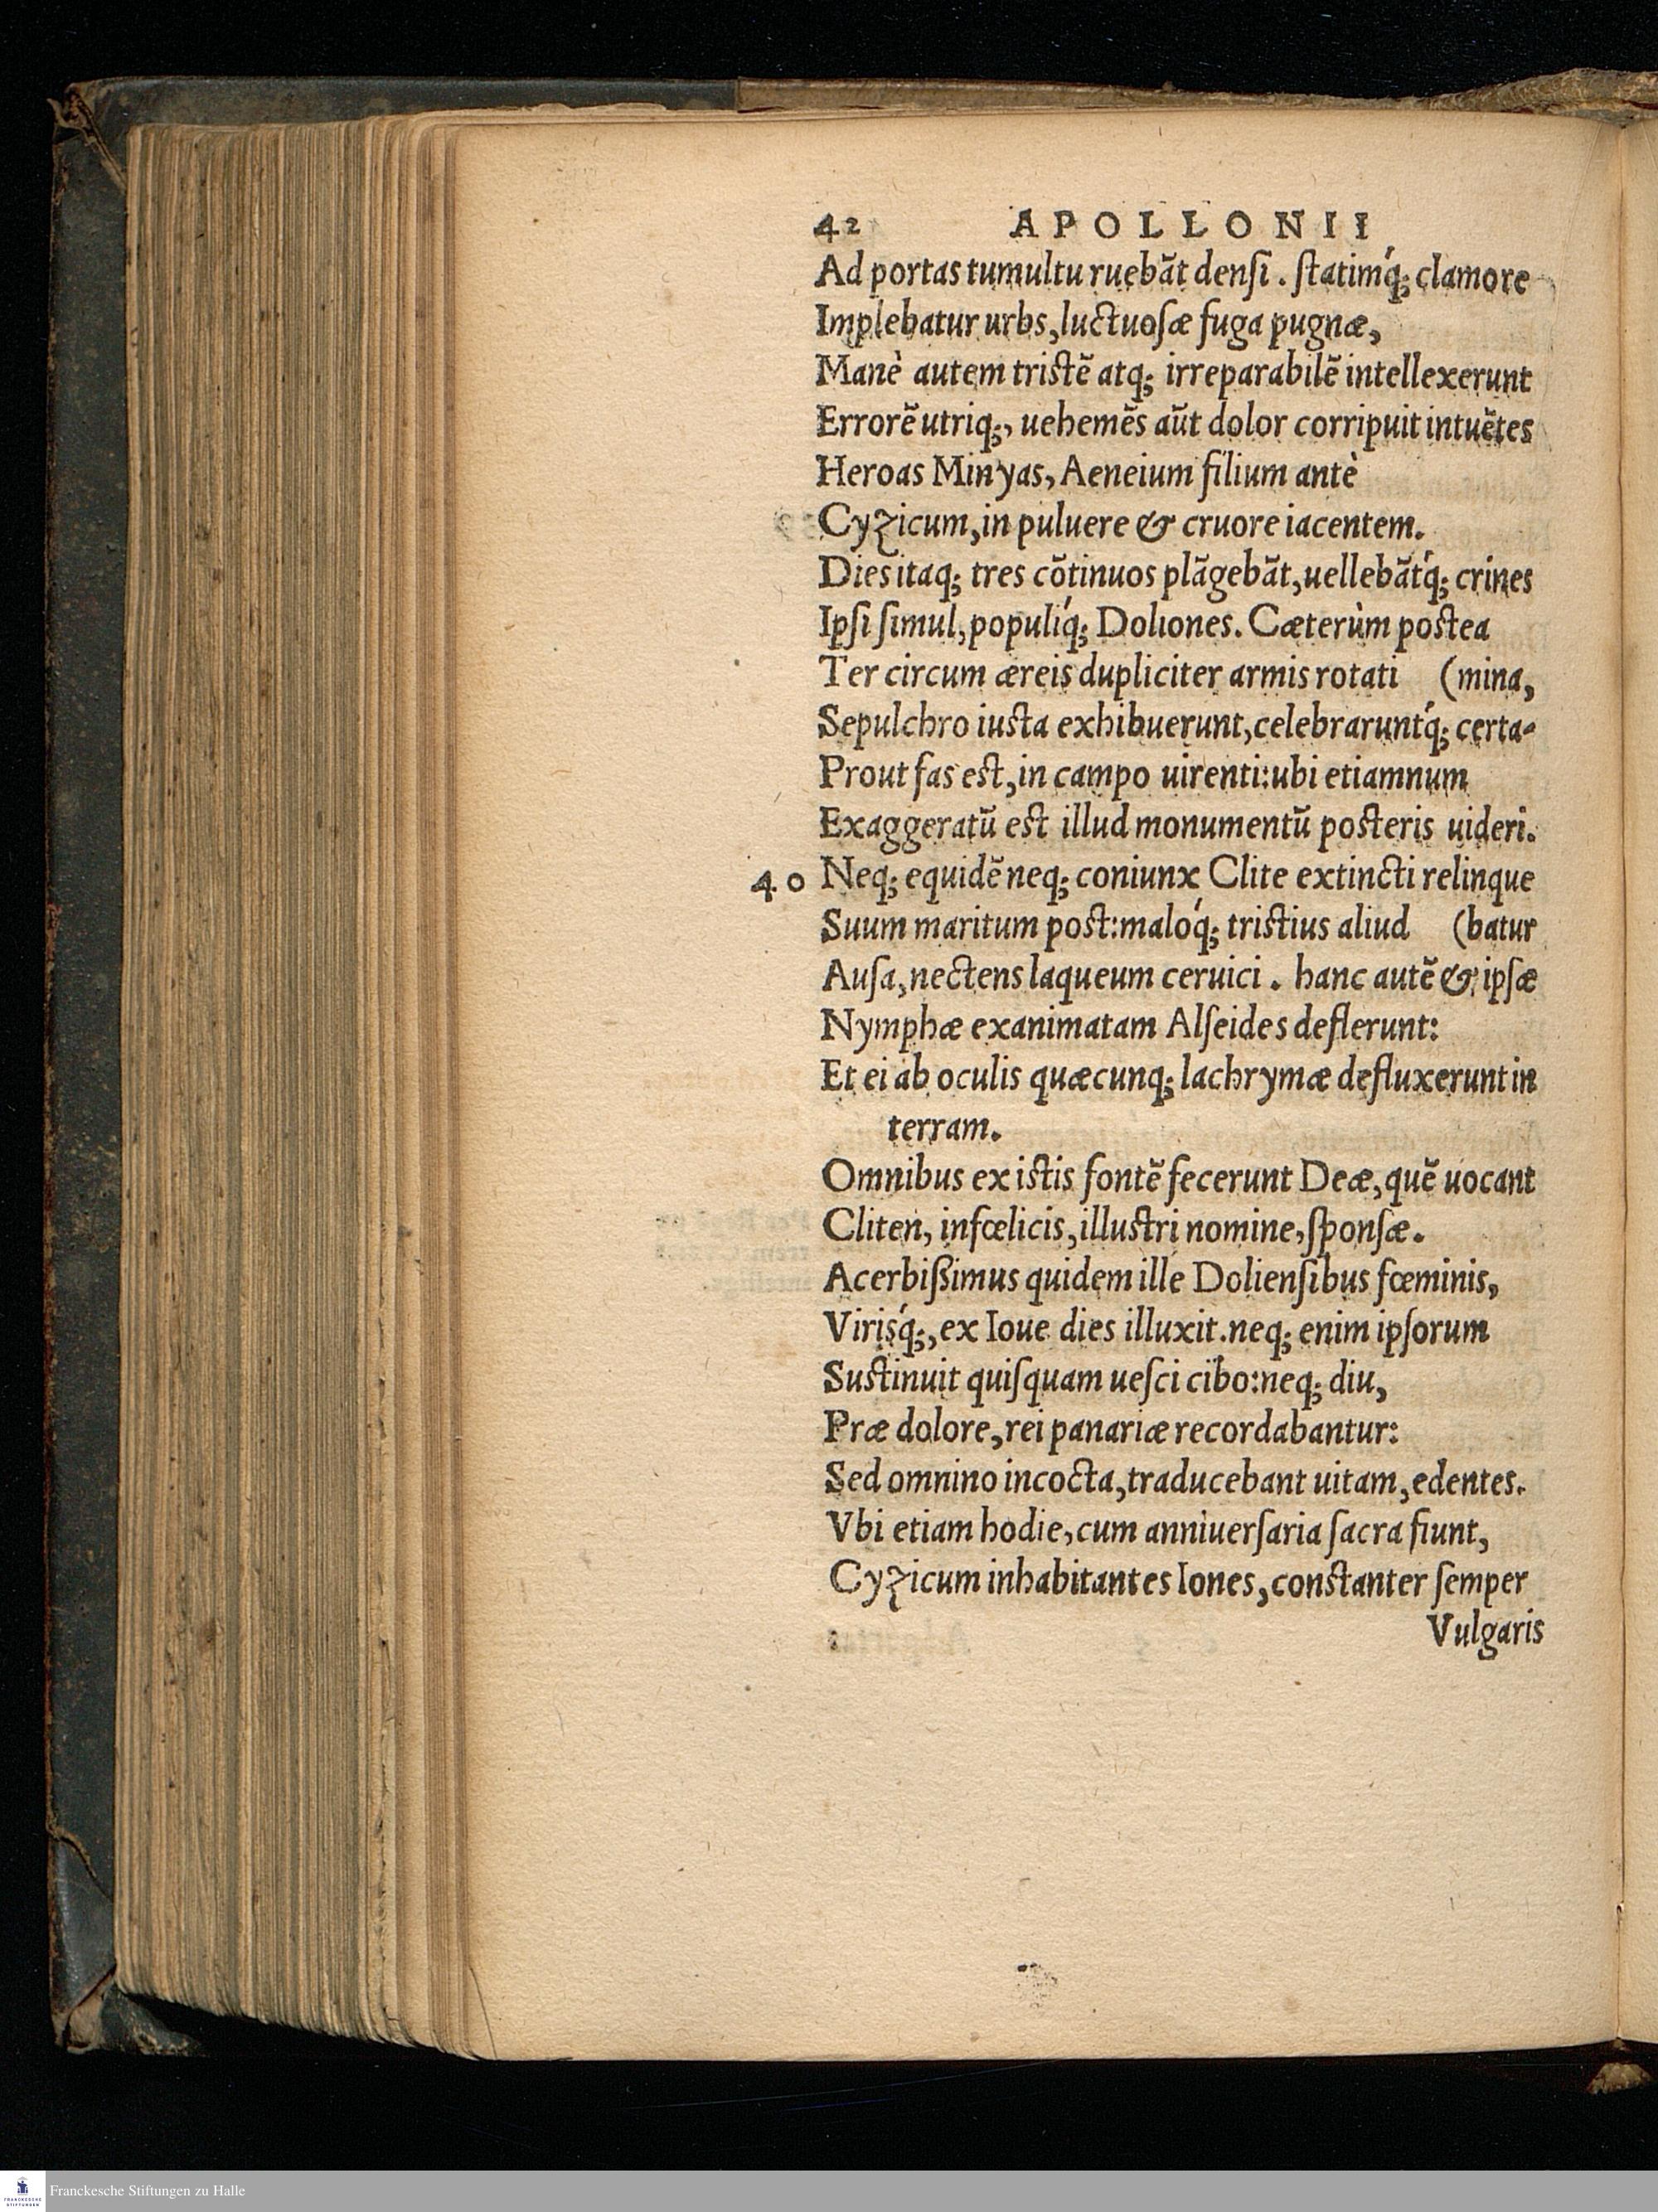 42 APOLLONII
Ad portas tumultu ruebãt densi. statimq́; clamore
Implebatur urbs, luctuosæ fuga pugnæ,
Manè autem tristẽ atq; irreparabilẽ intellexerunt
Errorẽ utriq;, uehemẽs aũt dolor corripuit intuẽtes
Heroas Minyas, Aeneium filium antè
Cyzicum, in puluere & cruore iacentem.
Dies itaq; tres cõtinuos plãgebãt, uellebãtq́; crines
Ipsi simul, populiq́; Doliones. Cæterùm postea
Ter circum æreis dupliciter armis rotati (mina,
Sepulchro iusta exhibuerunt, celebraruntq́; certa-
Prout fas est, in campo uirenti: ubi etiamnum
Exaggeratũ est illud monumentũ posteris uideri.
40 Neq; equidẽ neq; coniunx Clite extincti relinque
Suum maritum post: maloq́; tristius aliud (batur
Ausa, nectens laqueum ceruici. hanc autẽ & ipsæ
Nymphæ exanimatam Alseides deflerunt:
Et ei ab oculis quæcunq; lachrymæ defluxerunt in
terram.
Omnibus ex istis fontẽ fecerunt Deæ, quẽ uocant
Cliten, infœlicis, illustri nomine, sponsæ.
Acerbißimus quidem ille Doliensibus fœminis,
Virisq́;, ex Ioue dies illuxit. neq; enim ipsorum
Sustinuit quisquam uesci cibo: neq; diu,
Præ dolore, rei panariæ recordabantur:
Sed omnino incocta, traducebant uitam, edentes.
Vbi etiam hodie, cum anniuersaria sacra fiunt,
Cyzicum inhabitantes Iones, constanter semper
Vulgaris
FRANCKESCHE STIFTUNGEN
Franckesche Stiftungen zu Halle